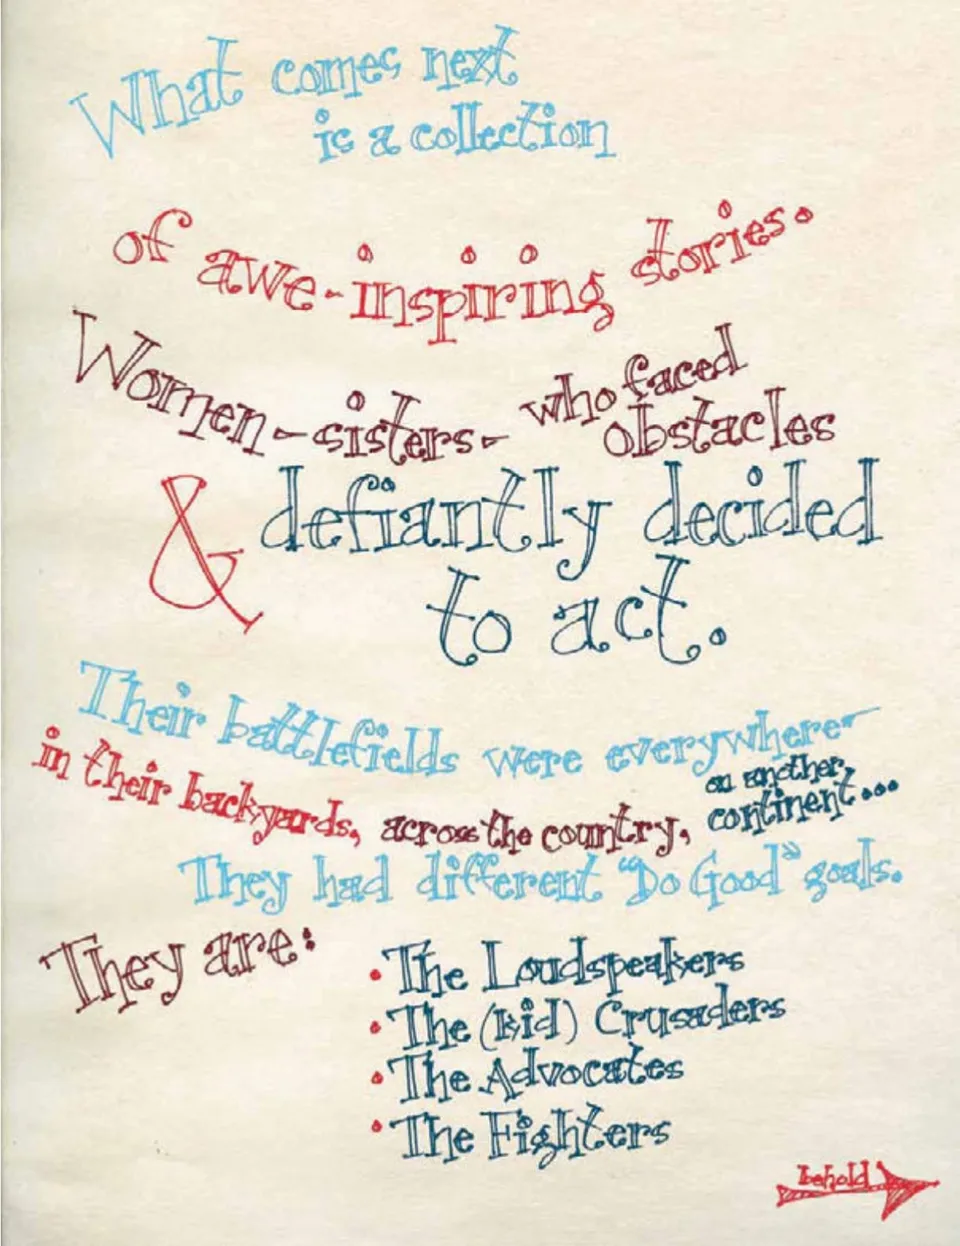 What comes next
is a collection
of awe-inspiring stories.
Women - sisters - who faced
obstacles
& defiantly decided
to act.
Their battlefields were everywhere-
in their backyards, across the country, on another
continent...
They had different "Do Good" goals.
They are:
• The Loudspeakers
• The (kid) Crusaders
• The Advocates
• The Fighters
behold